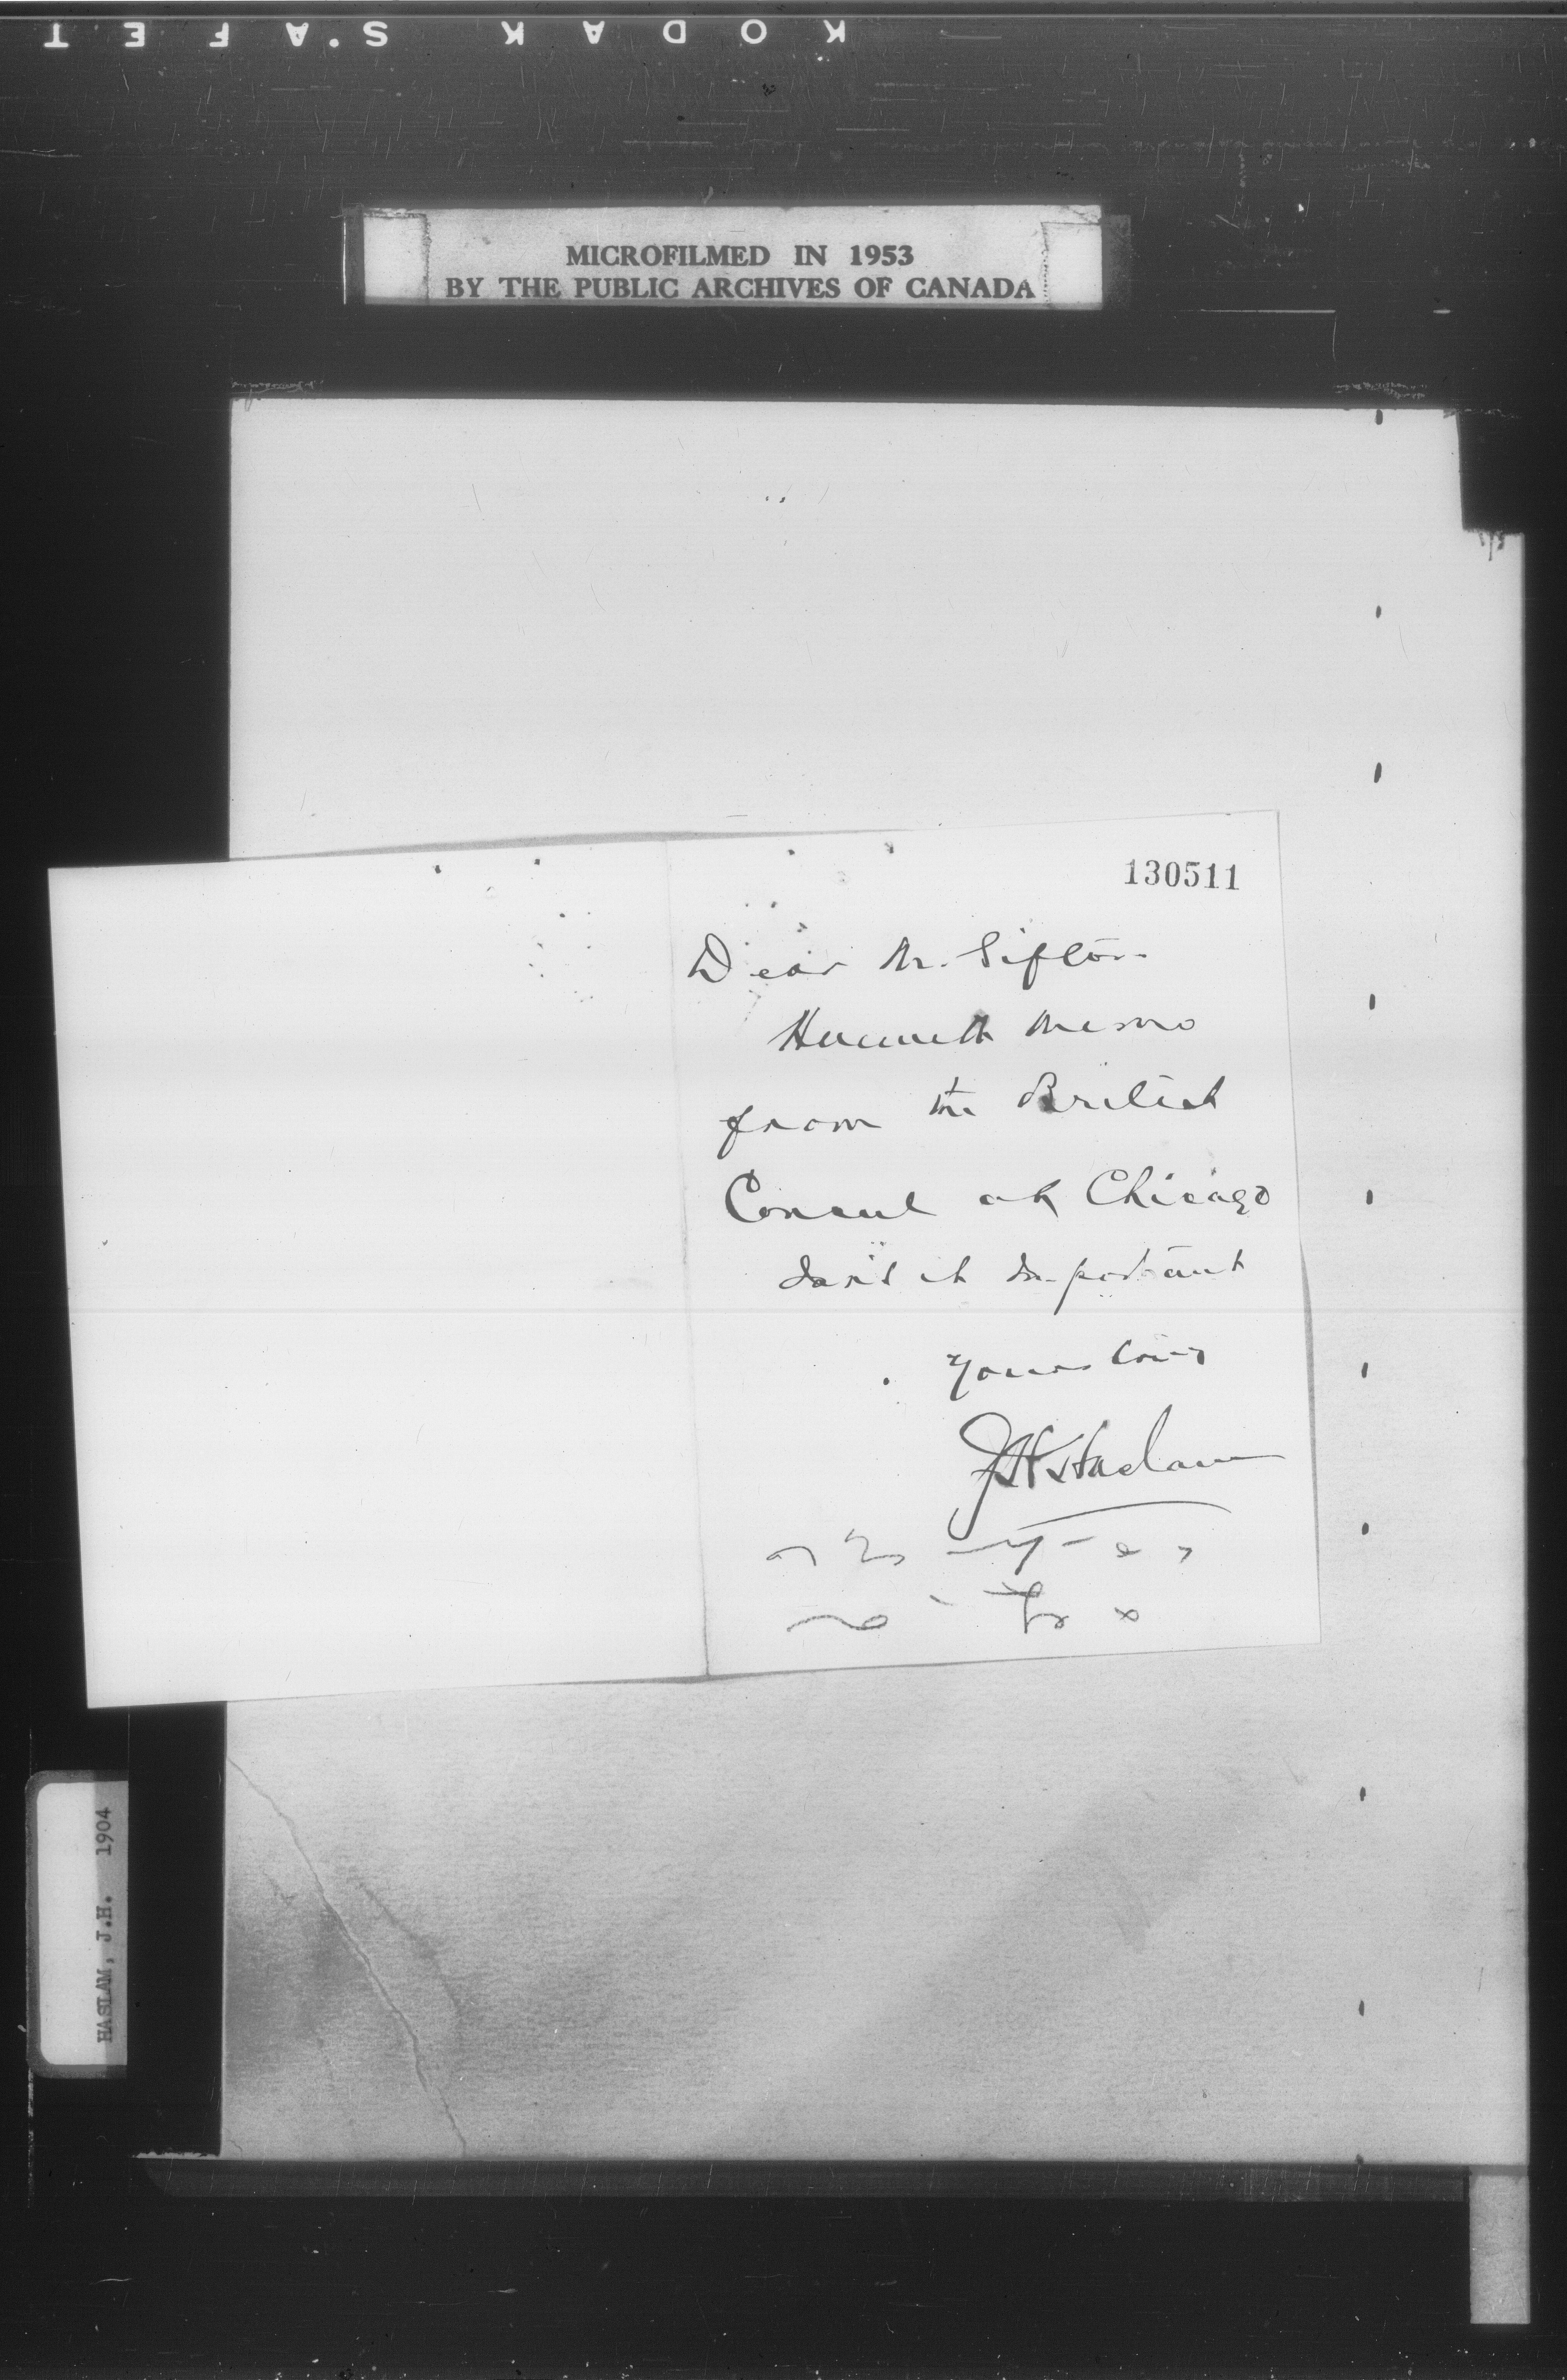 KODAK S'AFET
MICROFILMED IN 1953
BY THE PUBLIC ARCHIVES OF CANADA
130511
Dear Mr. Sifton
Herewith memo
from the British
Consul at Chicago
Isn't it important
Yours truly
J H Haslam
HASLAM, J.H. 1904